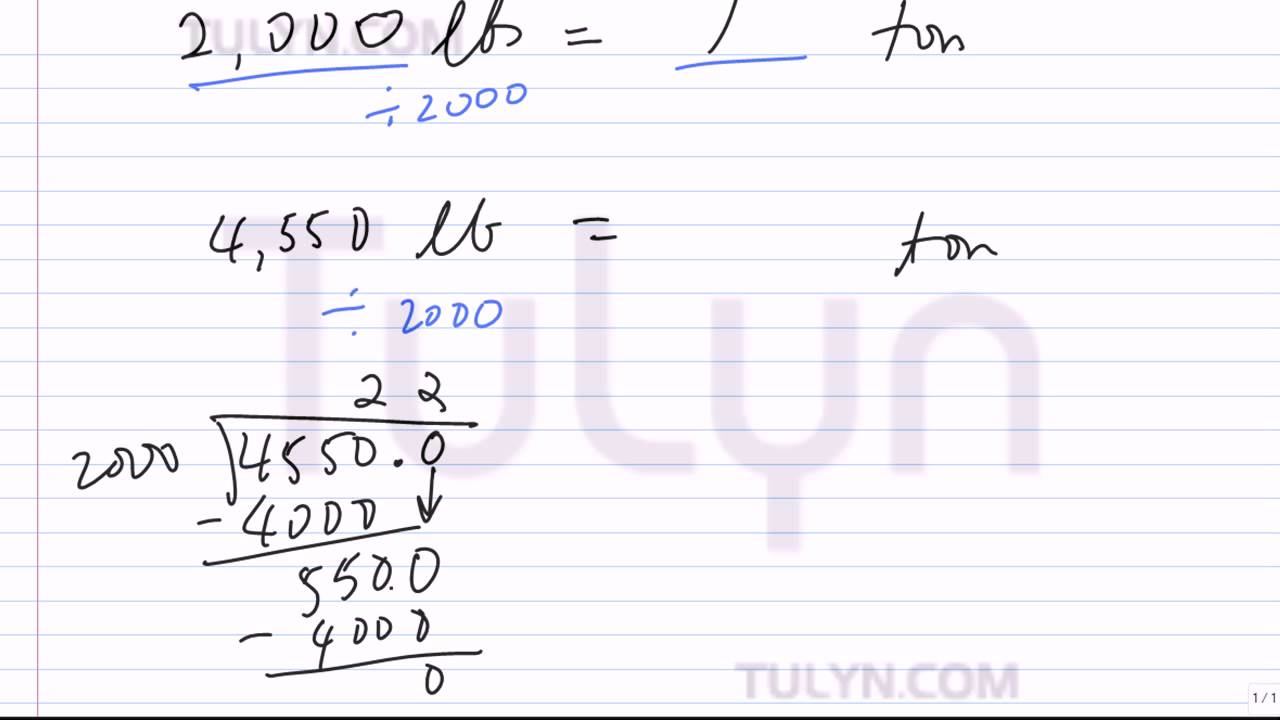 2,000 lbs = 1 ton
÷ 2000
4,550 lb = ton
÷ 2000
2 2
2000 4550.0
- 4000
550.0
- 4000
0
TULYN.COM
Tulyn
TULYN.COM
1 / 1